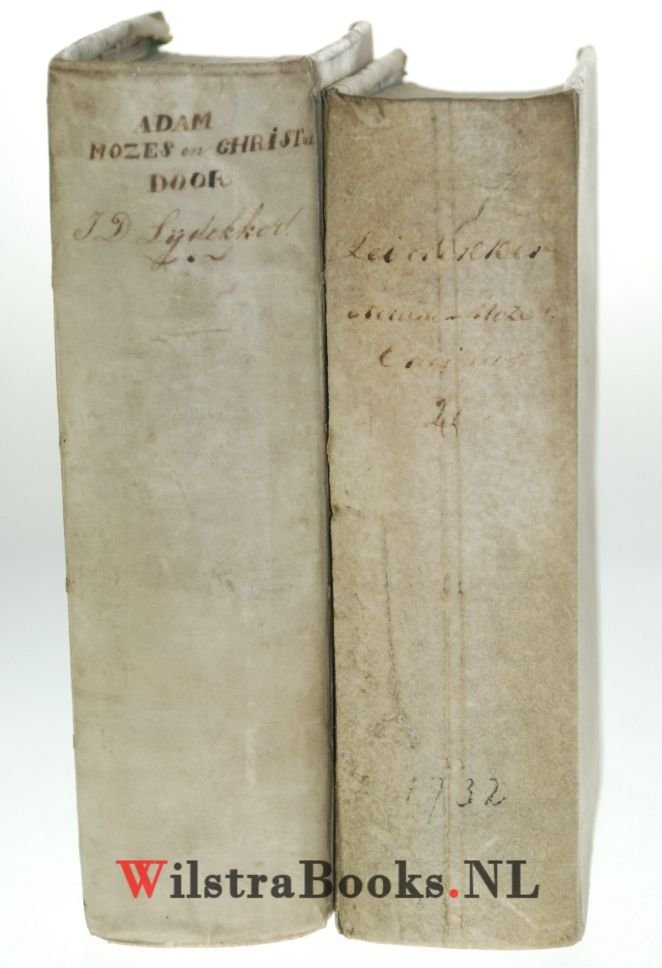 ADAM
MOZES en CHRISTus
DOOR
J D Lydekker
Leidekker
Mozes
2
1732
WilstraBooks.NL